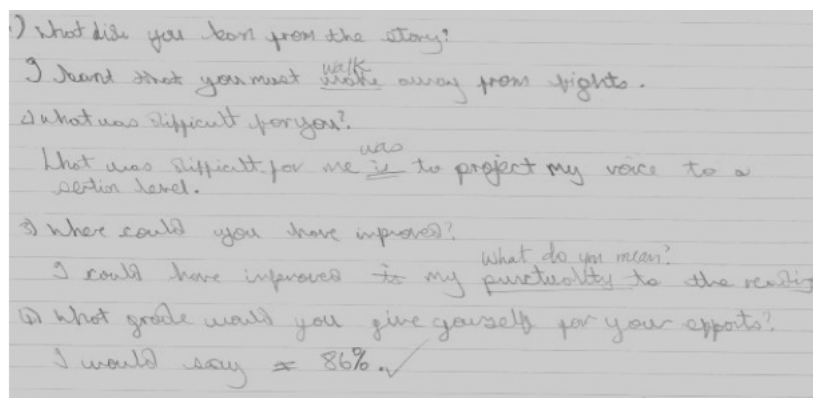 1) What did you learn from the story?
I learnt that you must make away from fights.
walk
2) What was difficult for you?
What was difficult for me is to project my voice to a
was
sertin level.
3) Where could you have inproved?
What do you mean?
I could have inproved is my punctuality to the reading
4) What grade would you give yourself for your efforts?
I would say 86%.